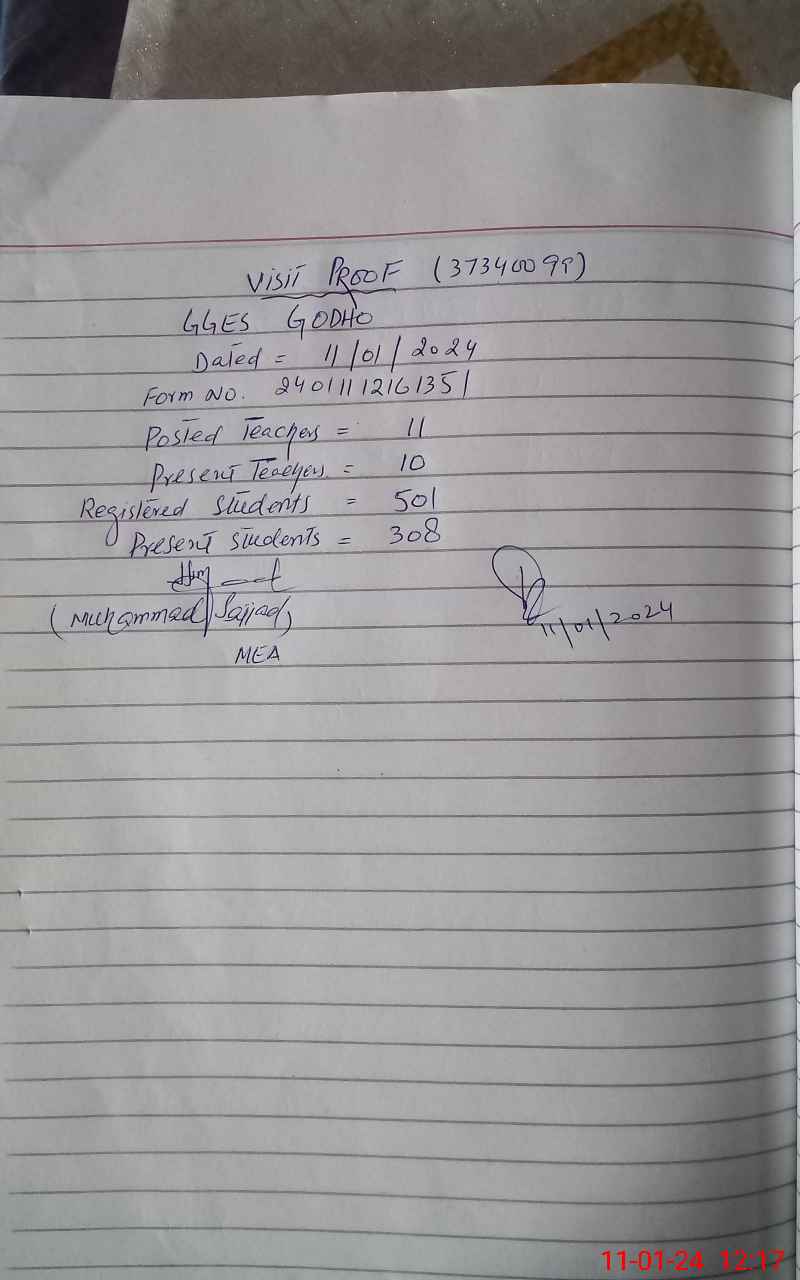 VISIT PROOF (37340099)
GGES GODHO
Dated = 11/01/2024
Form No. 24011112161351
Posted Teachers = 11
Present Teachers = 10
Registered Students = 501
Present Students = 308
(Muhammad Sajjad)
MEA
11/01/2024
11-01-24 12:17